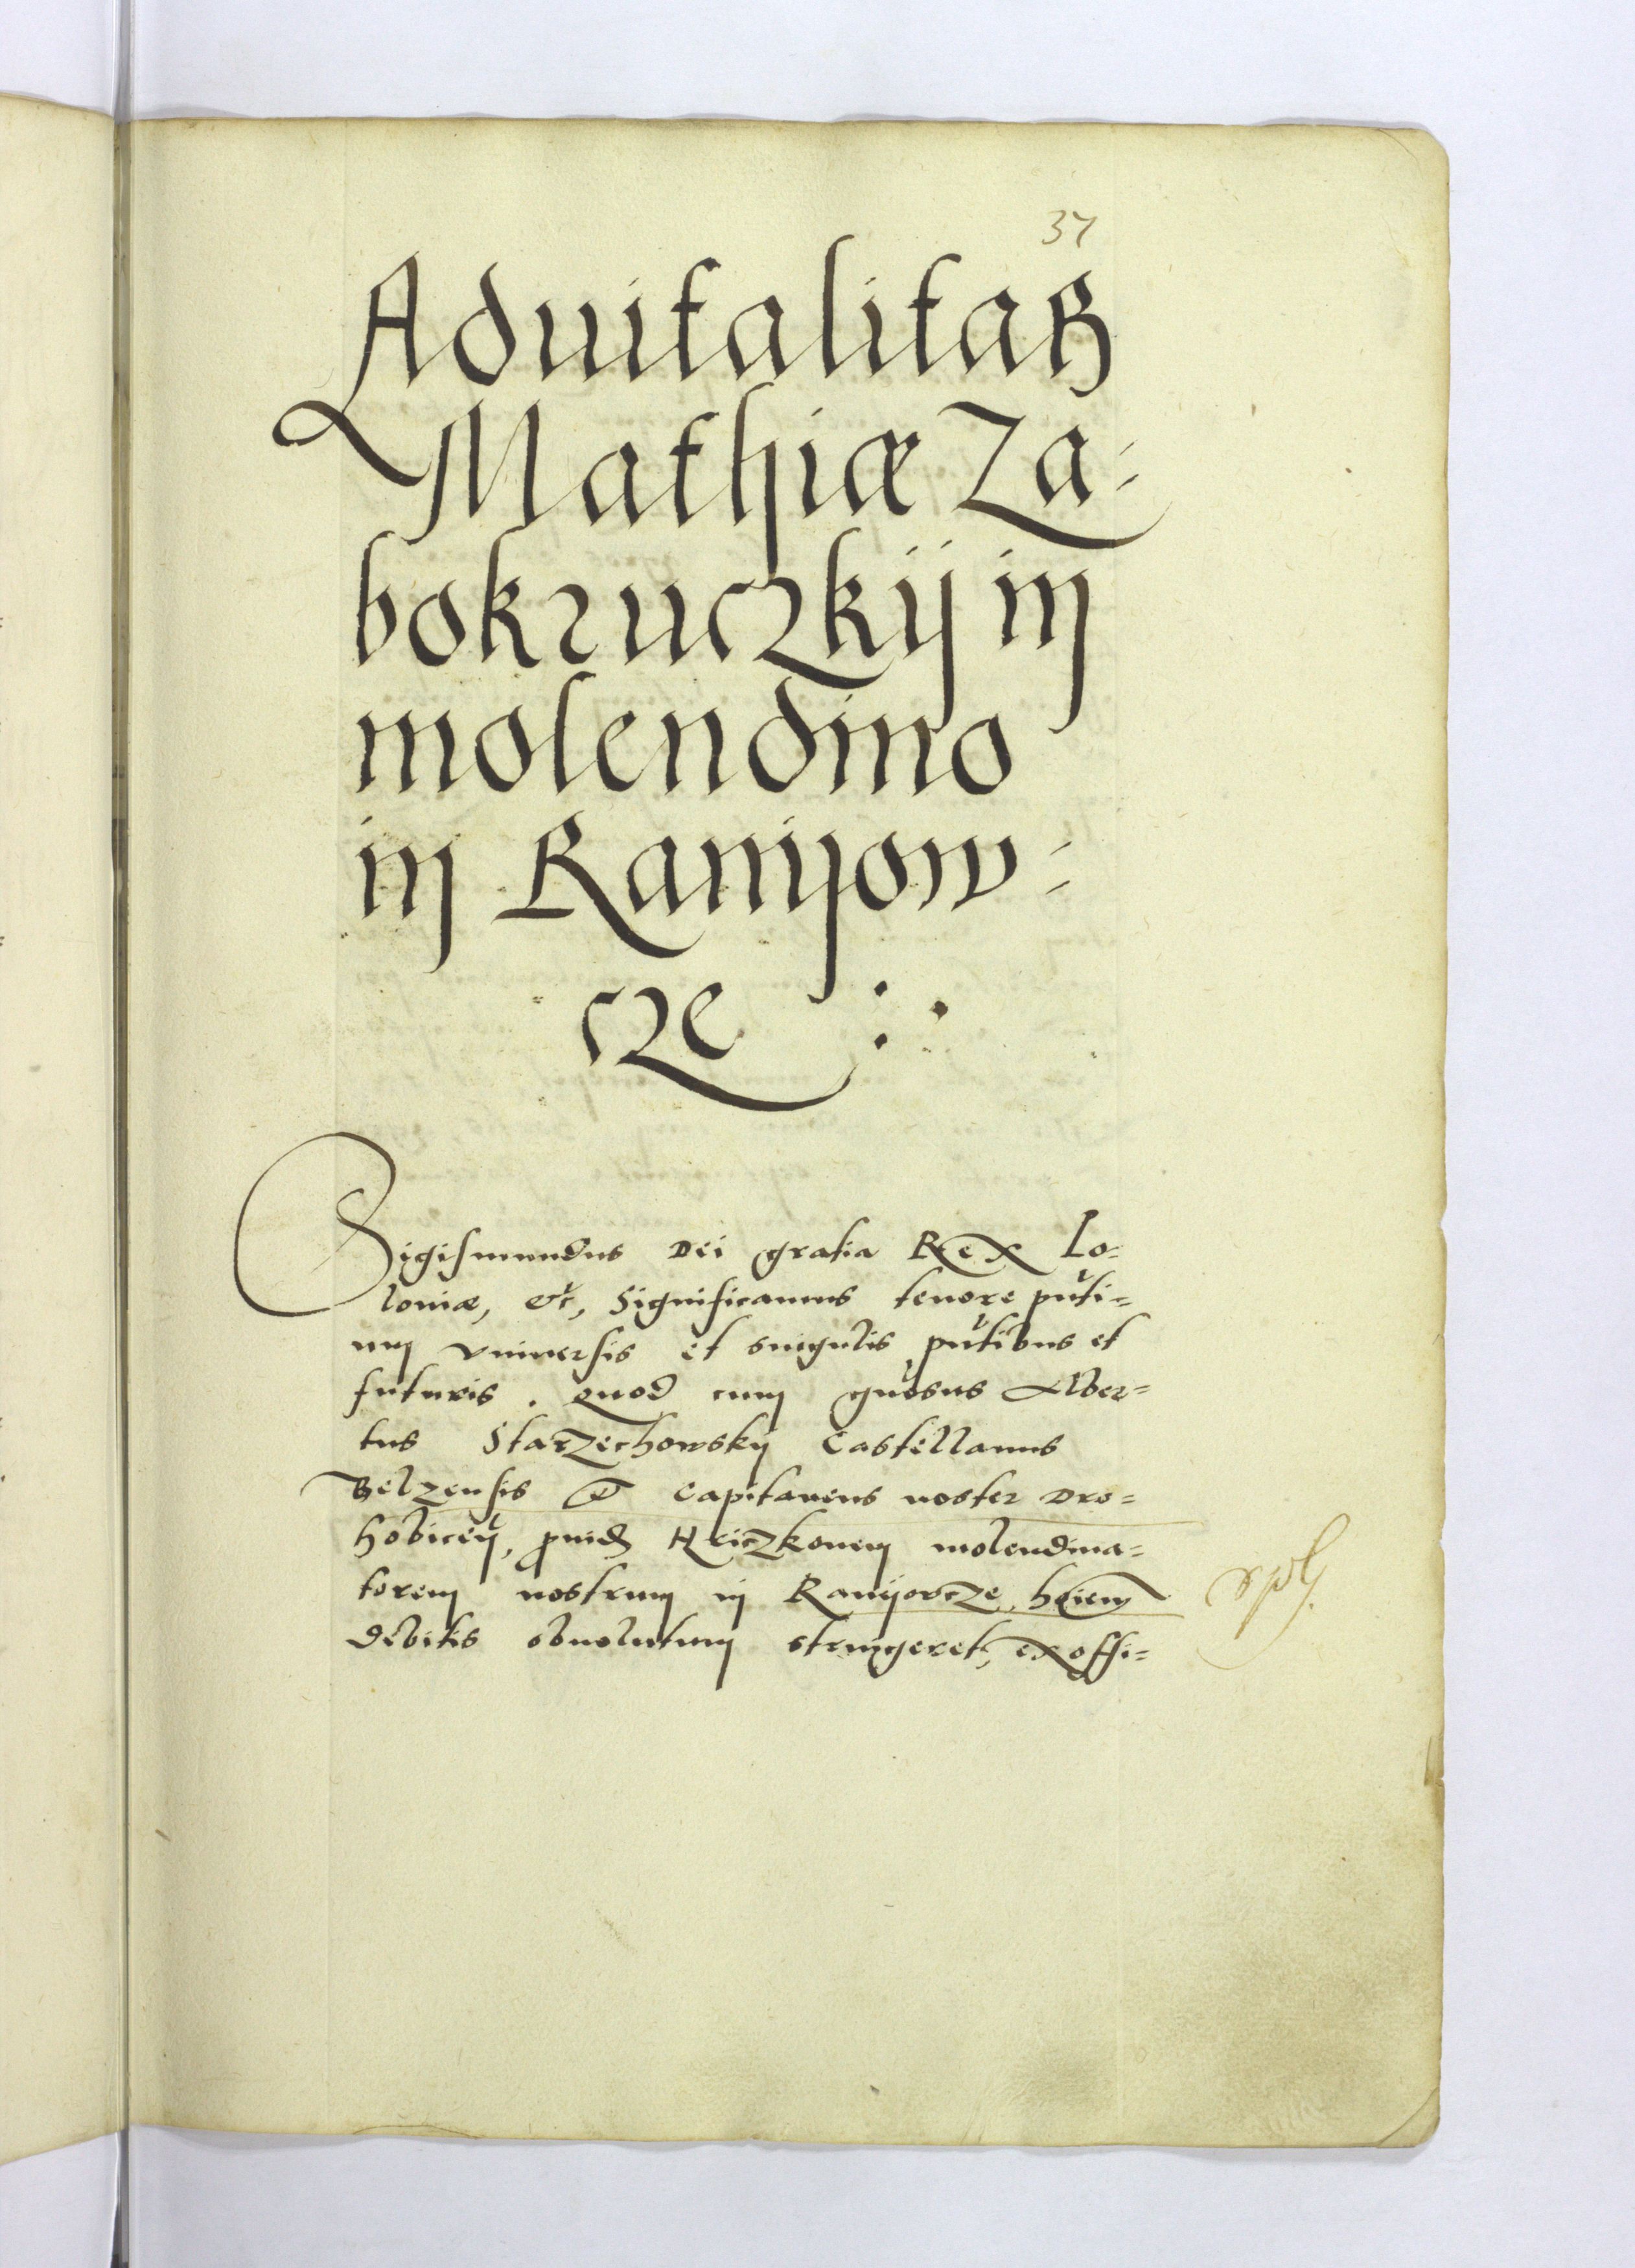 37
Aduitalitas
Mathiæ Za-
bokruczkij in
molendino
in Ranijow-
cze
Sigismundus Dei gratia Rex Po-
loniæ, etc, Significamus tenore pnti-
um vniuersis et singulis pntibus et
futuris. Quod cum gnosus Alber-
tus Starzechowskij Castellanus
Belzensis et Capitaneus noster Dro-
hobicen, prouid Hriczkonem molendina-
torem nostrum in Ranijowcze
debitis obuolutum stringeret, ex offi-